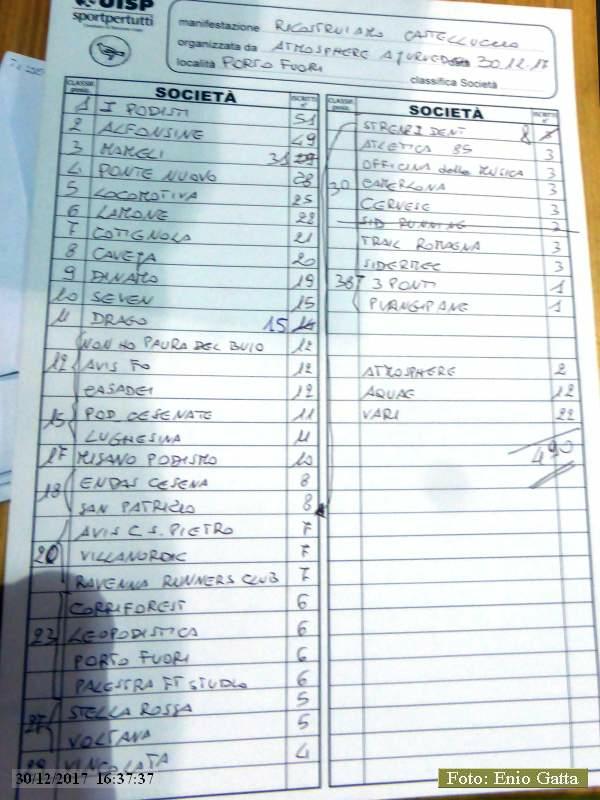 UISP
sportpertutti
manifestazione RICOSTRUIAMO CASTELLUCCIO
organizzata da ATMOSPHERE AYURVEDA 30.12.17
località PORTO FUORI
classifica Società
CLASSIF. SOCIETÀ ISCRITTI n°
1 I PODISTI 51
2 ALFONSINE 49
3 MAMELI 31
4 PONTE NUOVO 28
5 LOCOMOTIVA 25
6 LAMONE 22
7 COTIGNOLA 21
8 CAVEJA 20
9 DINAMO 19
10 SEVEN 15
11 DRAGO 15 14
NON HO PAURA DEL BUIO 12
12 AVIS FO 12
CASADEI 12
15 POD CESENATE 11
LUGHESINA 11
17 MISANO PODISMO 10
18 ENDAS CESENA 8
SAN PATRIZIO 8
AVIS C S. PIETRO 7
20 VILLANORDIC 7
RAVENNA RUNNERS CLUB 7
CORRIFOREST 6
23 LEOPODISTICA 6
PORTO FUORI 6
PALESTRA FT STUDIO 6
27 STELLA ROSSA 5
VOLTANA 5
29 VINCOLATA 4
CLASSIF. SOCIETÀ ISCRITTI n°
DENT 8
ATLETICA 85 3
OFFICINA della MUSICA 3
30 CAMERLONA 3
CERVESE 3
SID RUNNING 2
TRAIL ROMAGNA 3
SIDERMEC 3
38 3 PONTI 1
PUNGIPANE 1
ATMOSPHERE 2
AQUAE 12
VARI 22
490
30/12/2017 16:37:37
Foto: Enio Gatta